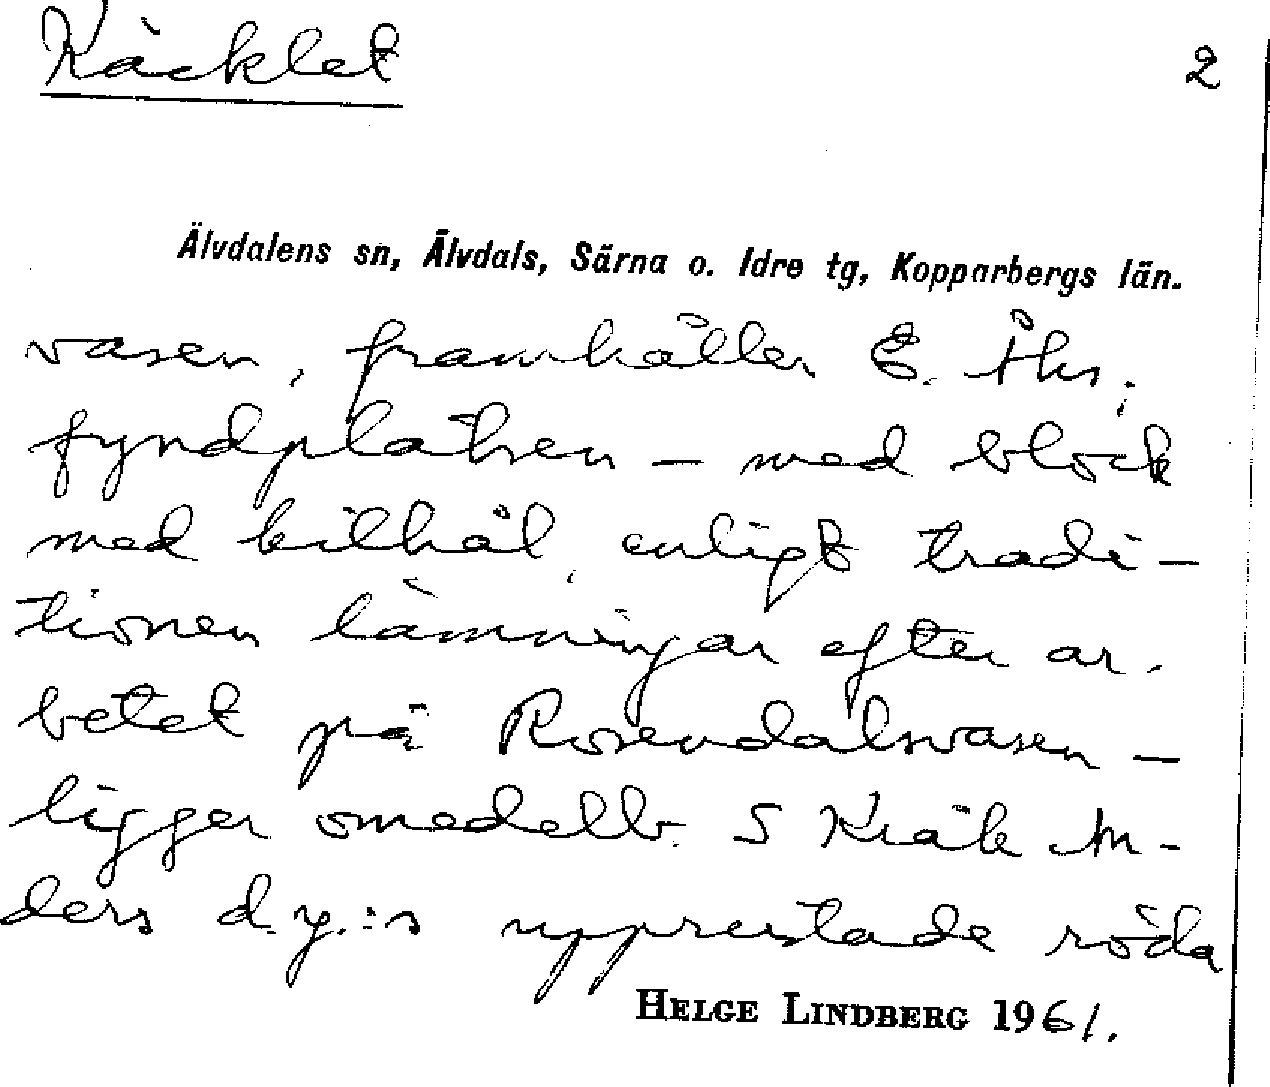 Käcklet 2
Älvdalens sn, Älvdals, Särna o. Idre tg, Kopparbergs län.
vasen, framhåller E. Åhs;
fyndplatsen – med block
med kilhål, enligt tradi-
tionen lämningar efter ar-
betet på Rosendalsvasen –
ligger omedelb. S Kråk An-
ders d.y.:s upprustade röda
HELGE LINDBERG 1961.